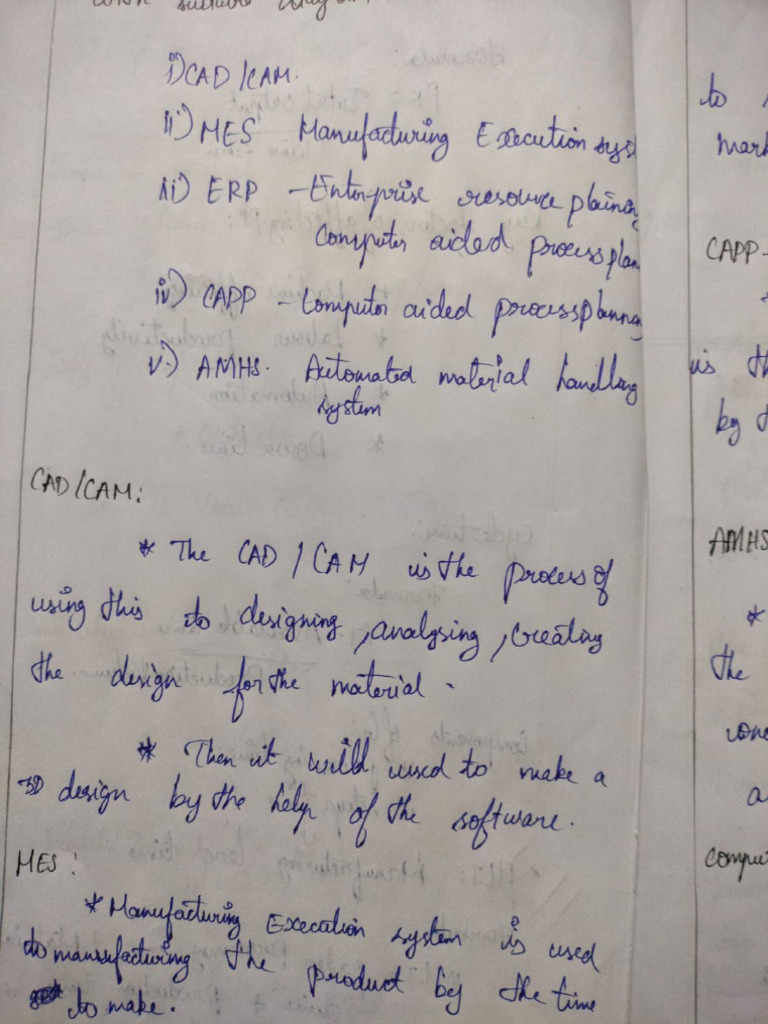 with suitable
i) CAD/CAM.
ii) MES Manufacturing Execution syst
iii) ERP - Enterprise resource plaining
Computer aided process plan
iv) CAPP - Computer aided process planning
v.) AMHS. Automated material handling
system
CAD/CAM:
* The CAD / CAM is the process of
using this to designing, analysing, creating
the design for the material.
* Then it will used to make a
3D design by the help of the software.
MES:
* Manufacturing Execution system is used
to manufacturing the product by the time
to make.
to
mark
CAPP-
is th
by t
AMHS
*
the
conc
a
comput